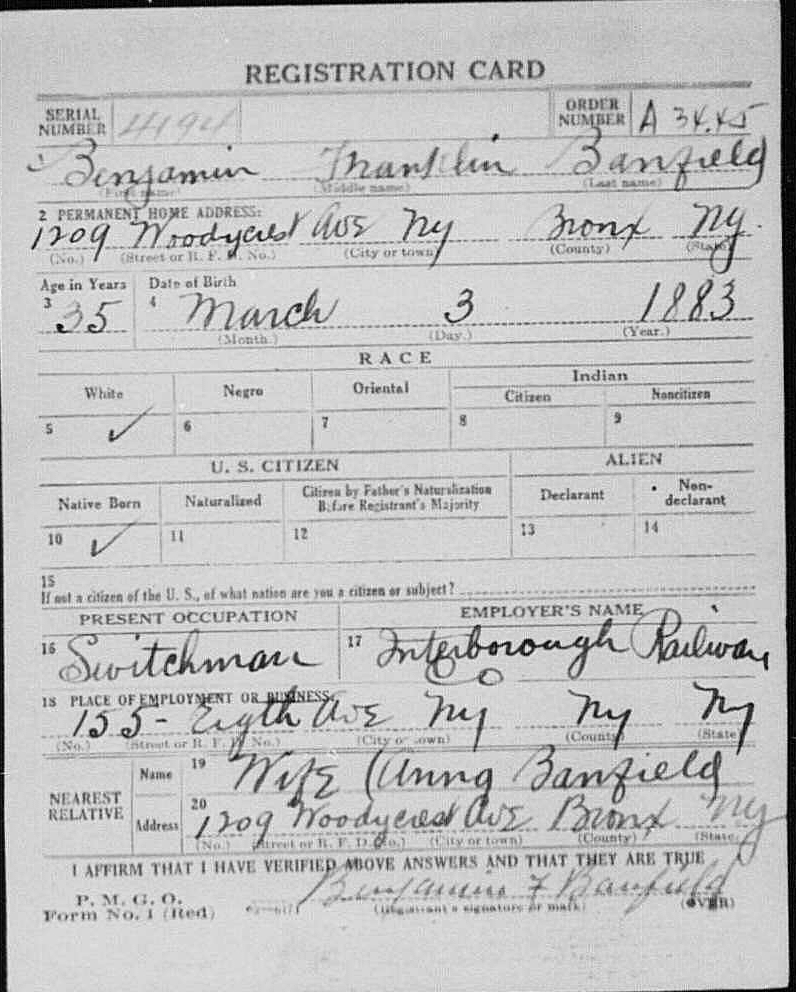 REGISTRATION CARD
SERIAL NUMBER 4194 ORDER NUMBER A 3445
Benjamin Franklin Banfield
(First name) (Middle name) (Last name)
2 PERMANENT HOME ADDRESS:
1209 Woodycrest Ave Ny Bronx Ny.
(No.) (Street or R. F. D. No.) (City or town) (County) (State)
Age in Years Date of Birth
3 35 4 March 3 1883
(Month.) (Day.) (Year.)
RACE
White Negro Oriental Indian
Citizen Noncitizen
5 ✓ 6 7 8 9
U. S. CITIZEN ALIEN
Native Born Naturalized Citizen by Father's Naturalization Before Registrant's Majority Declarant Non-declarant
10 ✓ 11 12 13 14
15
If not a citizen of the U. S., of what nation are you a citizen or subject?
PRESENT OCCUPATION EMPLOYER'S NAME
16 Switchman 17 Interborough Railway
Co
18 PLACE OF EMPLOYMENT OR BUSINESS:
155- Eigth Ave Ny Ny Ny
(No.) (Street or R. F. D. No.) (City or town) (County) (State)
NEAREST RELATIVE
Name 19 Wife (Anna Banfield
Address 20 1209 Woodycrest Ave Bronx Ny
(No.) (Street or R. F. D. No.) (City or town) (County) (State)
I AFFIRM THAT I HAVE VERIFIED ABOVE ANSWERS AND THAT THEY ARE TRUE
P. M. G. O.
Form No. 1 (Red) Benjamin F Banfield
(Registrant's signature or mark) (OVER)